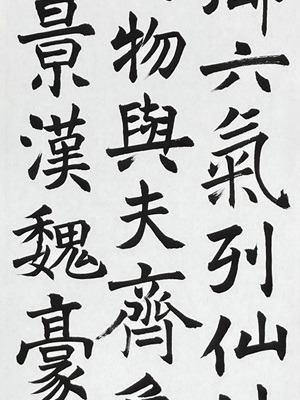 御六氣列仙
物與夫齊
景漢魏豪